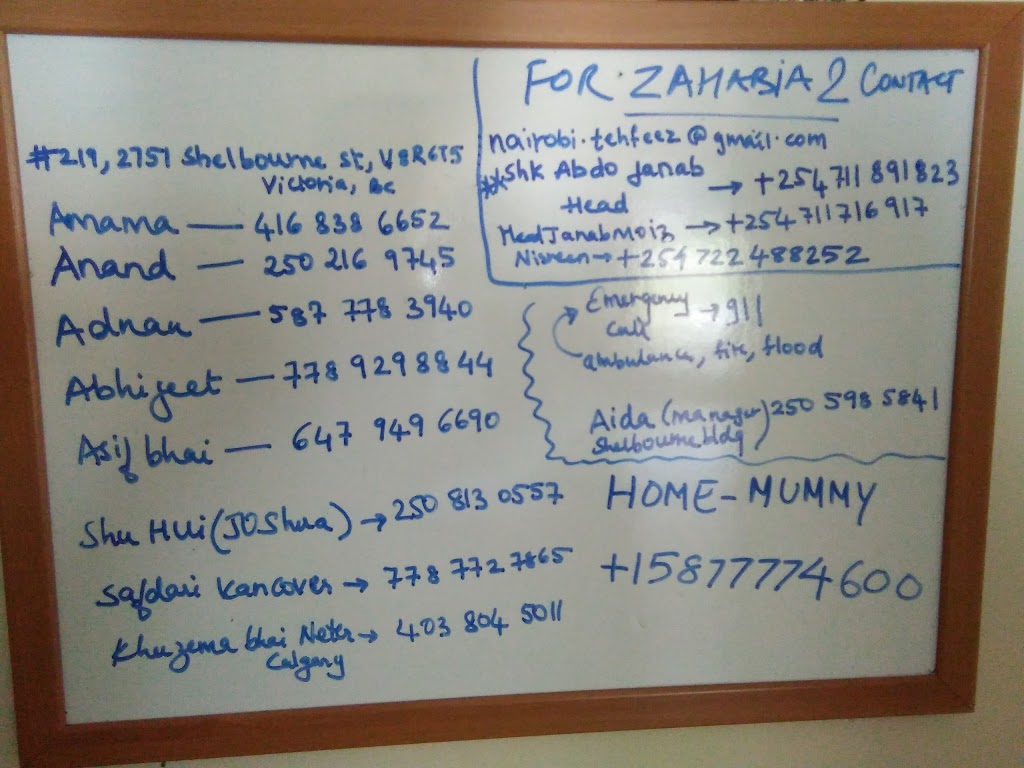 #219, 2751 Shelbourne st, V8R6T5
Victoria, BC
Amama — 416 838 6652
Anand — 250 216 9745
Adnan — 587 778 3940
Abhijeet — 778 929 8844
Asif bhai — 647 949 6690
Shu Hui (JOShua) → 250 813 0557
Safdari Vancover → 778 772 7865
Khuzema bhai → 403 804 5011
Calgary
FOR ZAHABIA 2 CONTACT
nairobi.tehfeez@gmail.com
**Shk Abdo Janab → +254 711 891 823
Head
Head Janab moiz → +254 711 716 917
Nisreen → +254 722 488252
Emergency → 911
Call
ambulance, fire, flood
Aida (manager) 250 598 5841
Shelbourne bldg
HOME - MUMMY
+15877774600